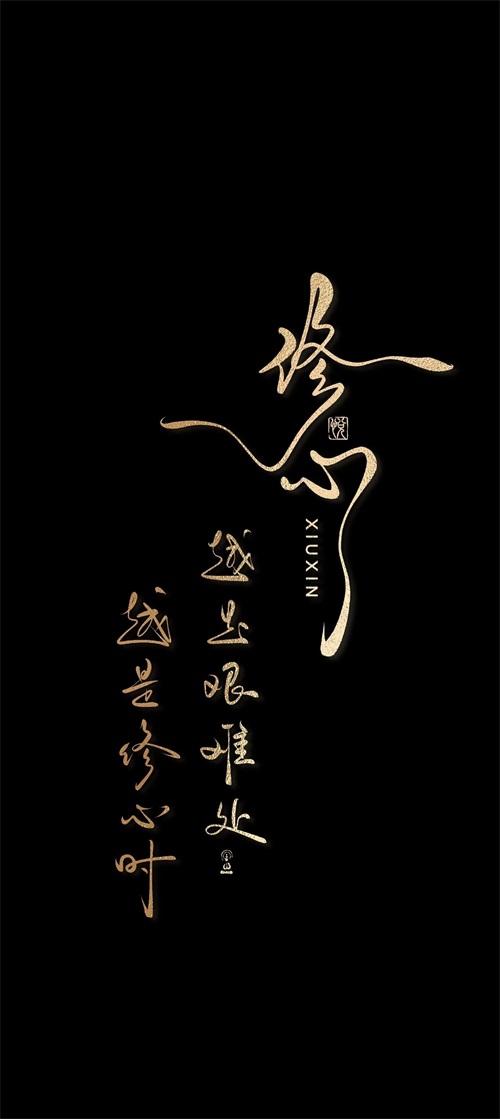 修心
XIUXIN
越是艰难处
越是修心时